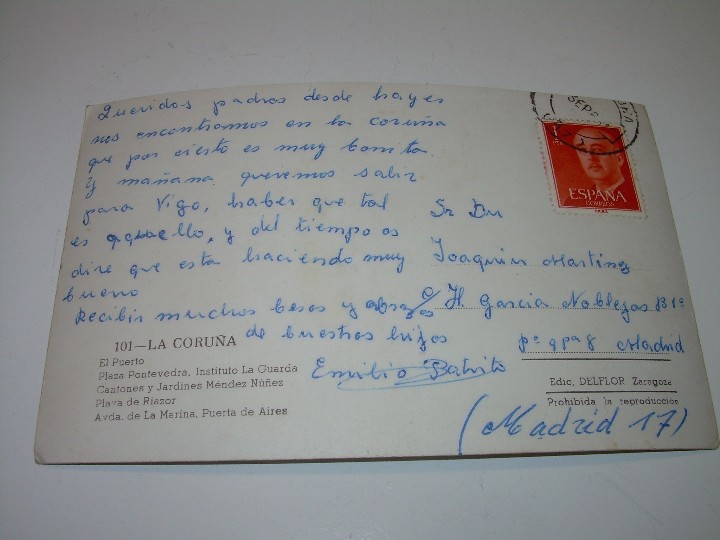 Queridos padres desde hay es
nos encontramos en la coruña
que por cierto es muy bonita
y mañana queremos salir
para Vigo, haber que tal
es aquello, y del tiempo os
dire que esta haciendo muy
bueno
Recibir muchos besos y abrazos
de buestros hijos
Emilio
ESPAÑA
CORREOS
Sr Dn
Joaquin Martinez
c/ H. Garcia Noblejas B1º
pº 9 pª 8 Madrid
(Madrid 17)
101—LA CORUÑA
El Puerto
Plaza Pontevedra, Instituto La Guarda
Cantones y Jardines Méndez Núñez
Playa de Riazor
Avda. de La Marina, Puerta de Aires
Edic. DELFLOR Zaragoza
Prohibida la reproducción